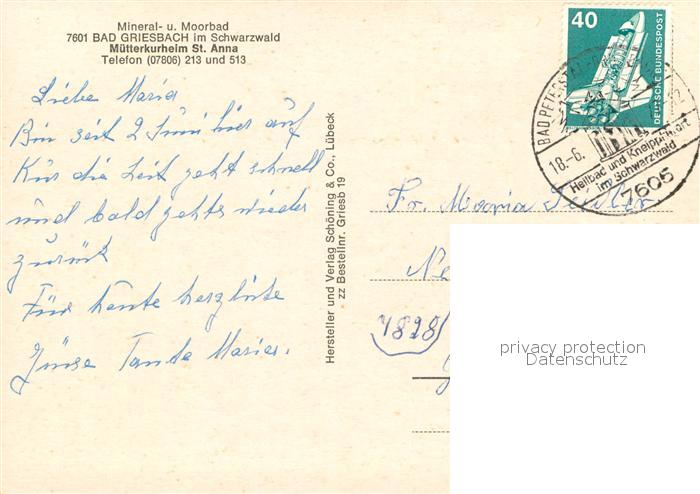 Mineral- u. Moorbad
7601 BAD GRIESBACH im Schwarzwald
Mütterkurheim St. Anna
Telefon (07806) 213 und 513
Liebe Maria
Bin seit 2 Juni hier auf
Kur die Zeit geht schnell
und bald gehts wieder
zurück
Für heute herzliche
Grüsse Tante Maria.
Hersteller und Verlag Schöning & Co., Lübeck
zz Bestellnr. Griesb 19
40
DEUTSCHE BUNDESPOST
BAD PETERSTAL-
18.-6.
12
Heilbad und Kneippkurort
im Schwarzwald
7605
Fr. Maria
Ne
4828
privacy protection
Datenschutz